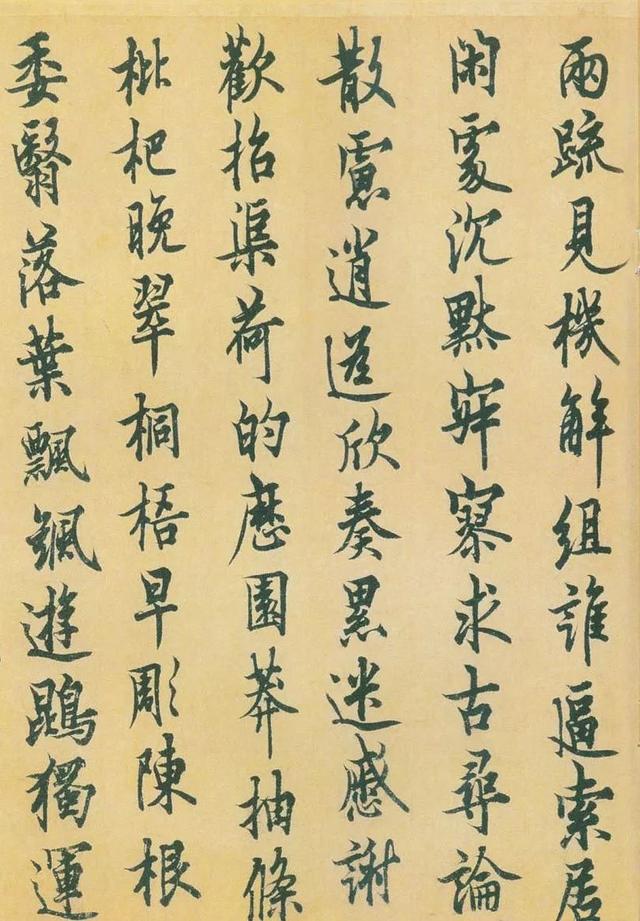 兩疏見機解組誰逼索居
閑處沉默寂寥求古尋論
散慮逍遥欣奏累遣慼謝
歡招渠荷的歷園莽抽條
枇杷晚翠桐梧早彫陳根
委翳落葉飄颻遊鵾獨運